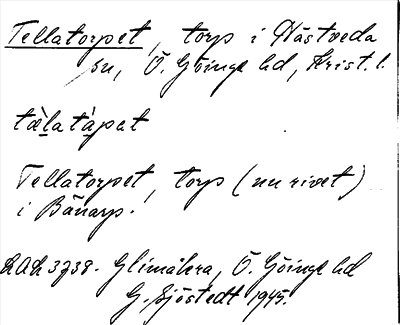 Tellatorpet, torp i Hästveda
sn, Ö. Göinge hd, Krist. l.
tæ̀latàpat
Tellatorpet, torp (nu rivet)
i Bänarp.
LAL 3738. Glimåkra, Ö. Göinge hd
G. Sjöstedt 1945.